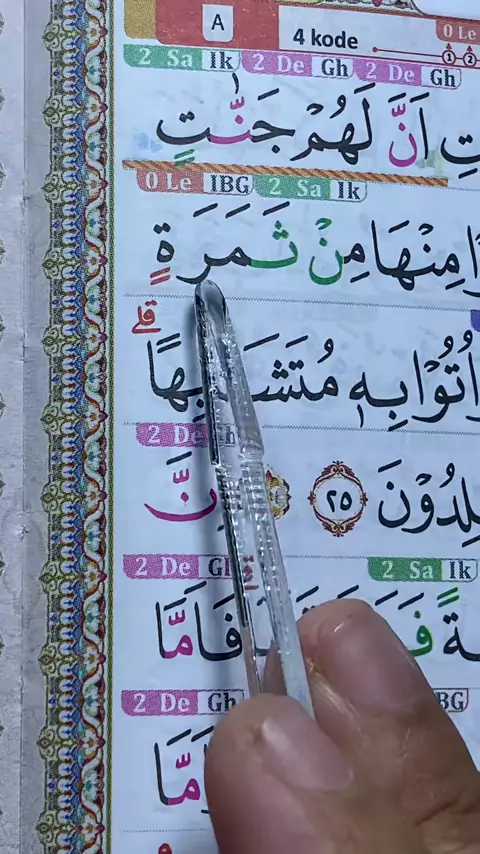 A
4 kode
0 Le
① ②
2 Sa Ik 2 De Gh 2 De Gh
تِ اَنَّ لَهُمْ جَنّٰتٍ
0 Le IBG 2 Sa Ik
مِنْهَا مِنْ ثَمَرَةٍ
قلے
اُتُوْا بِهٖ مُتَشَابِهًا
2 De
لِدُوْنَ ٢٥
نَّ
2 De 2 Sa Ik
ةً فَ فَاَمَّا
2 De Gh BG
مَّا